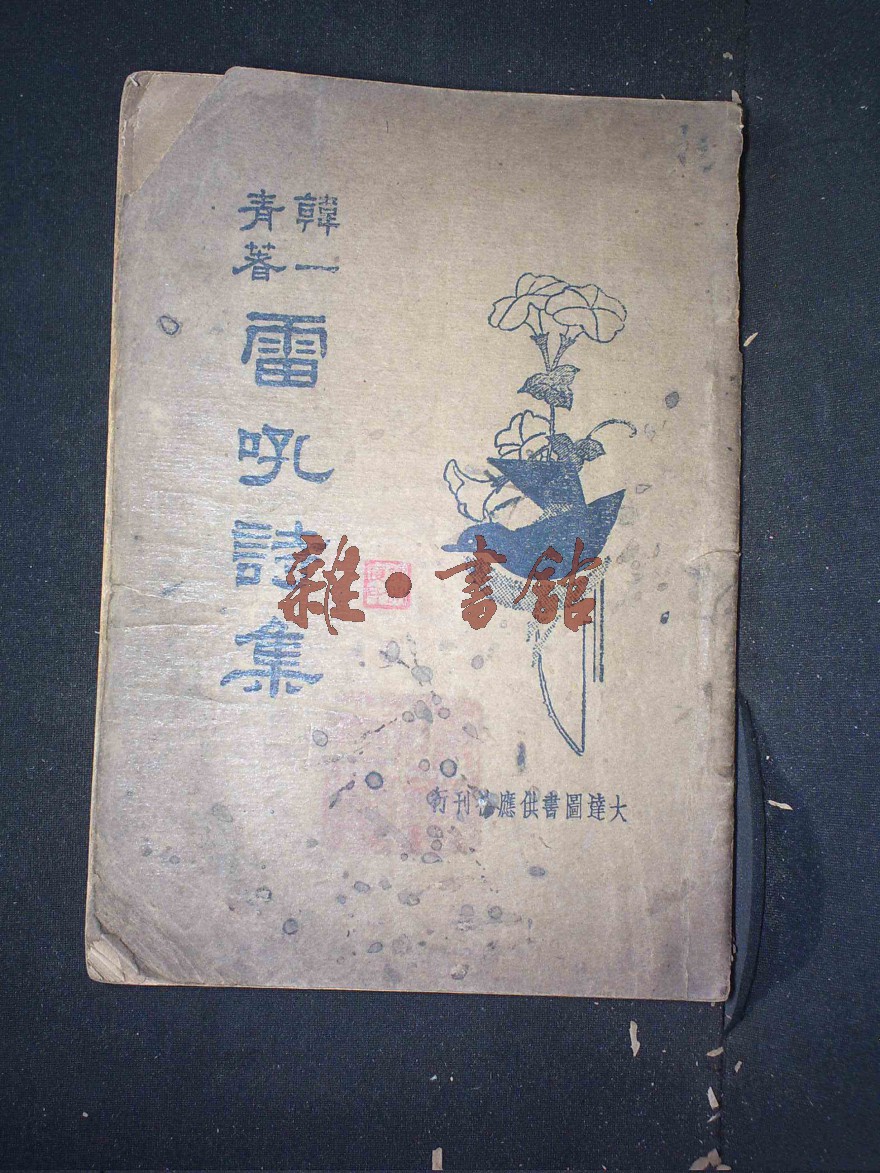 韓一
青著
雷吼詩集
雜·書館
大達圖書供應社刊行